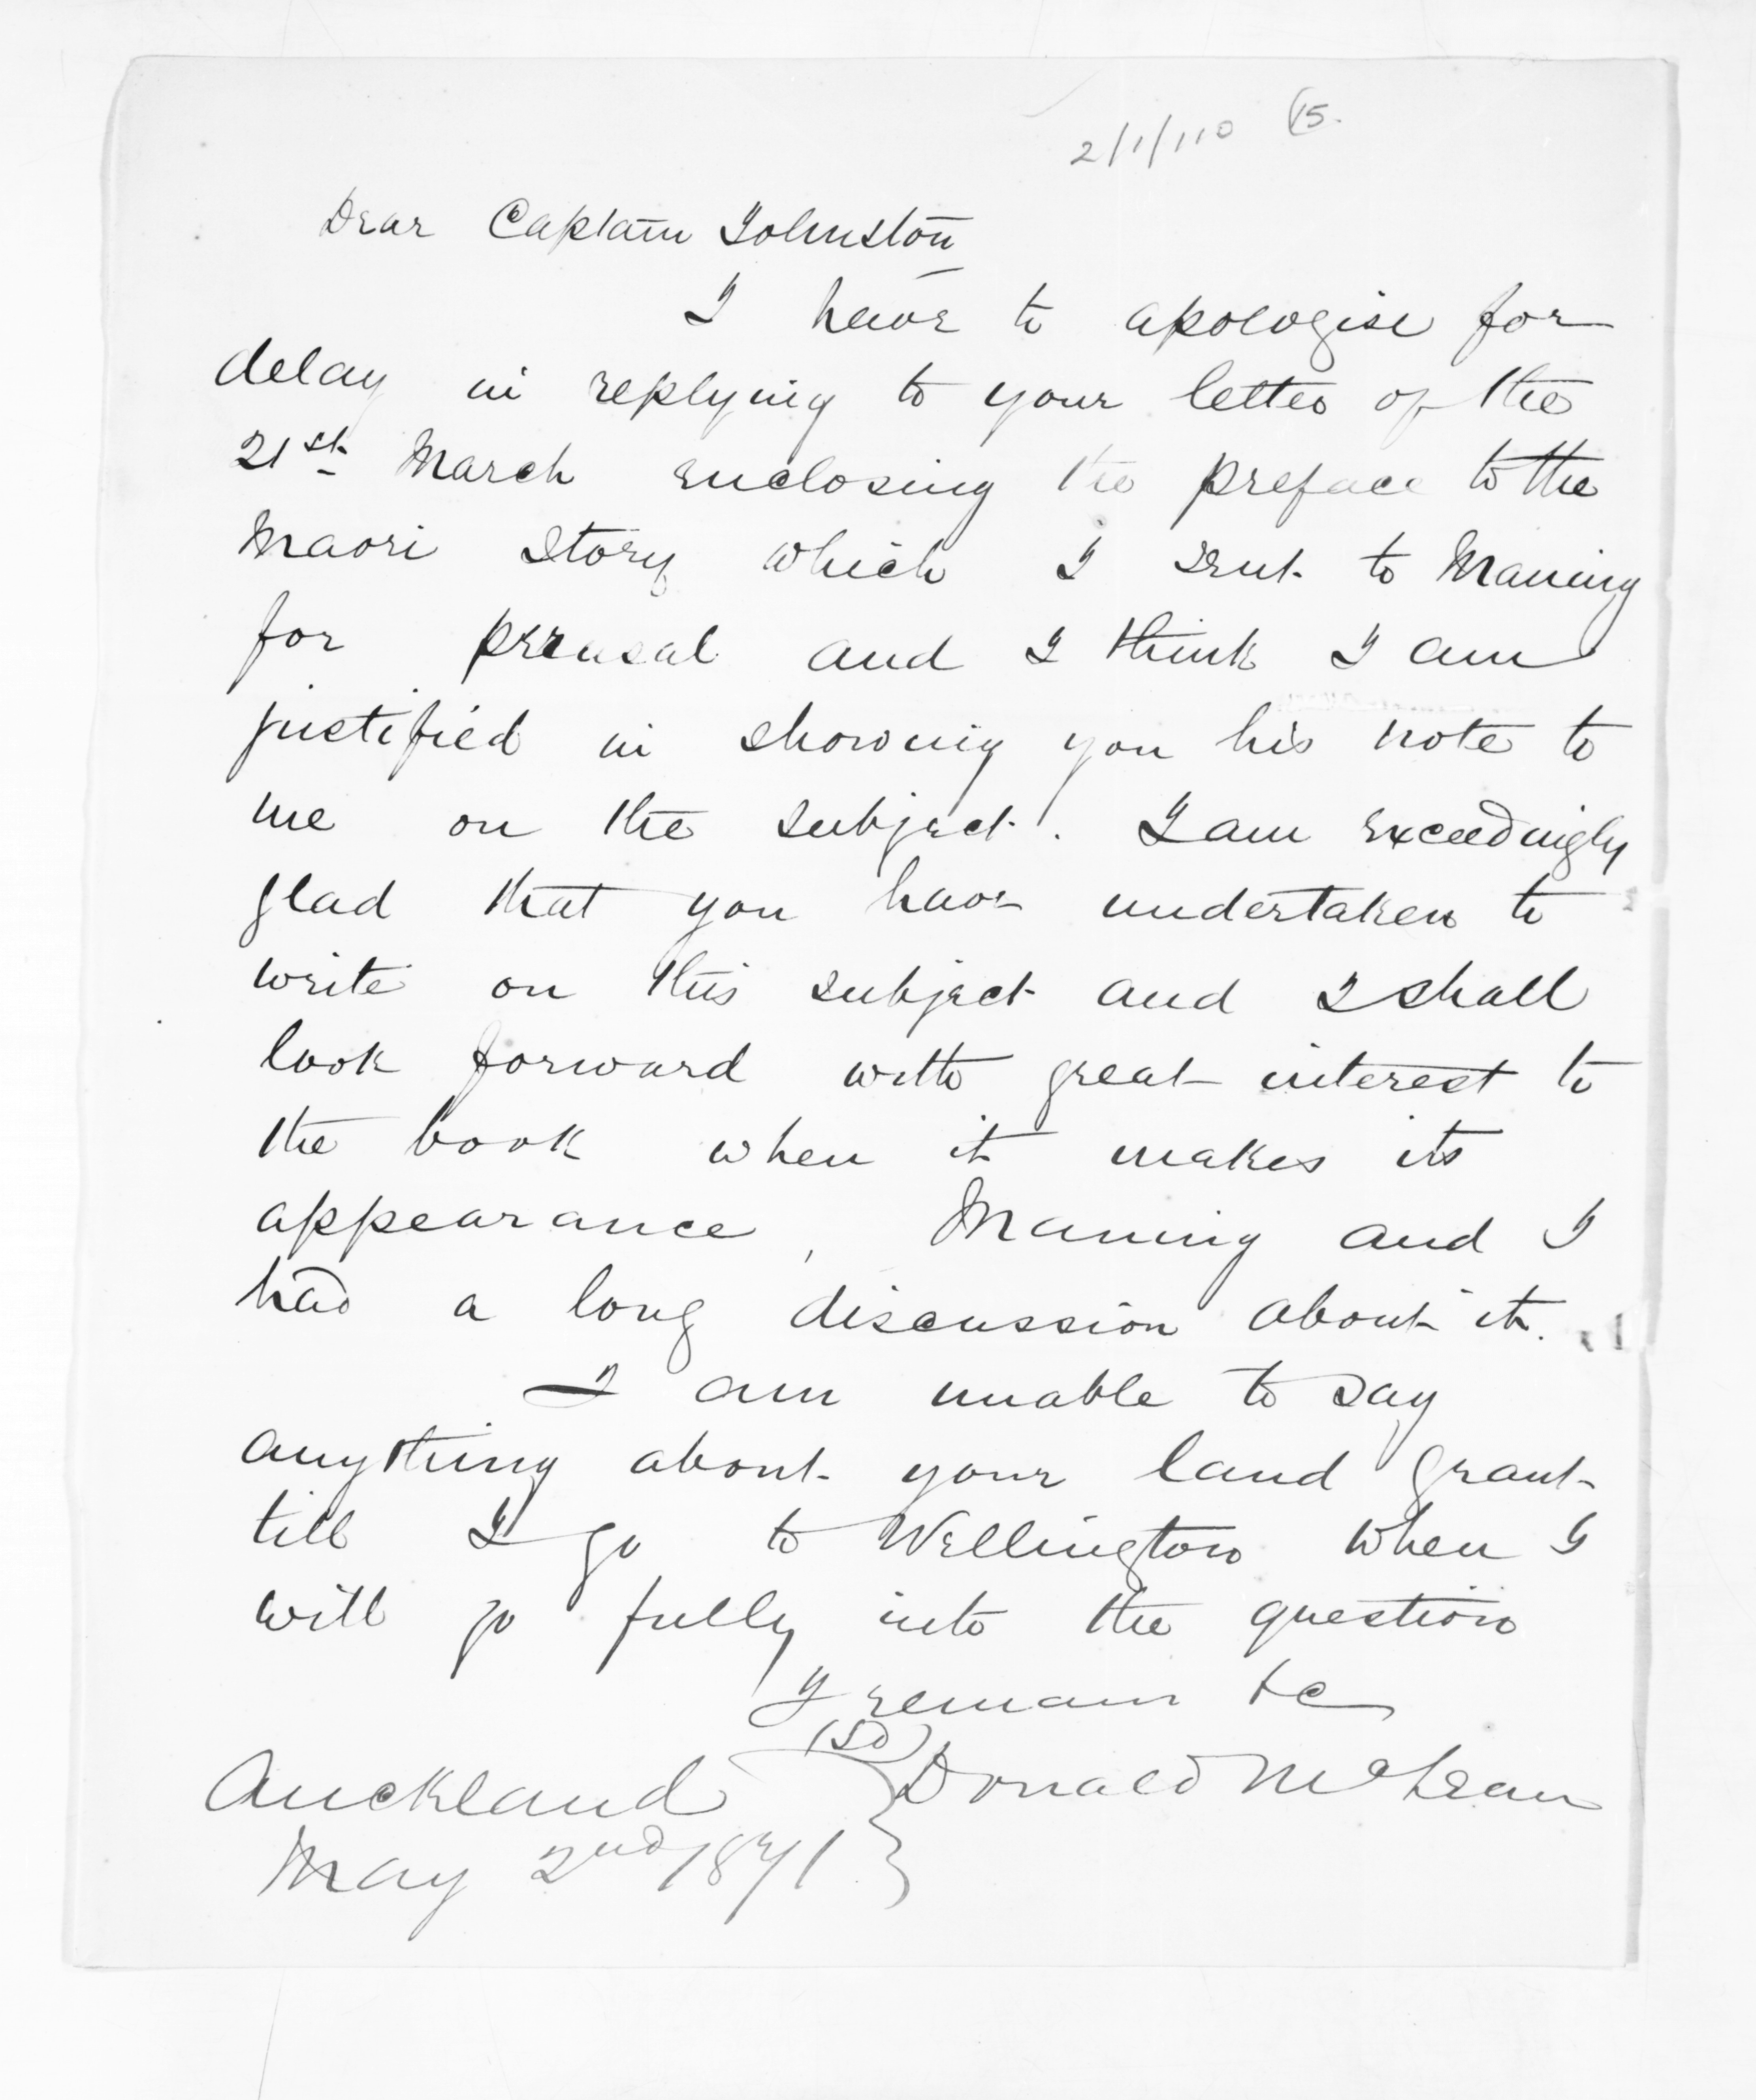 2/1/110 15.
Dear Captain Johnston
I have to apologise for
delay in replying to your letter of the
21st March enclosing the preface to the
Maori story which I sent to Maning
for perusal and I think I am
justified in showing you his note to
me on the subject. I am exceedingly
glad that you have undertaken to
write on this subject and I shall
look forward with great interest to
the book when it makes its
appearance, Maning and I
had a long discussion about it.
I am unable to say
anything about your land grant
till I go to Wellington when I
will go fully into the question
I remain &c
(Sd) Donald McLean
Auckland
May 2nd 1871